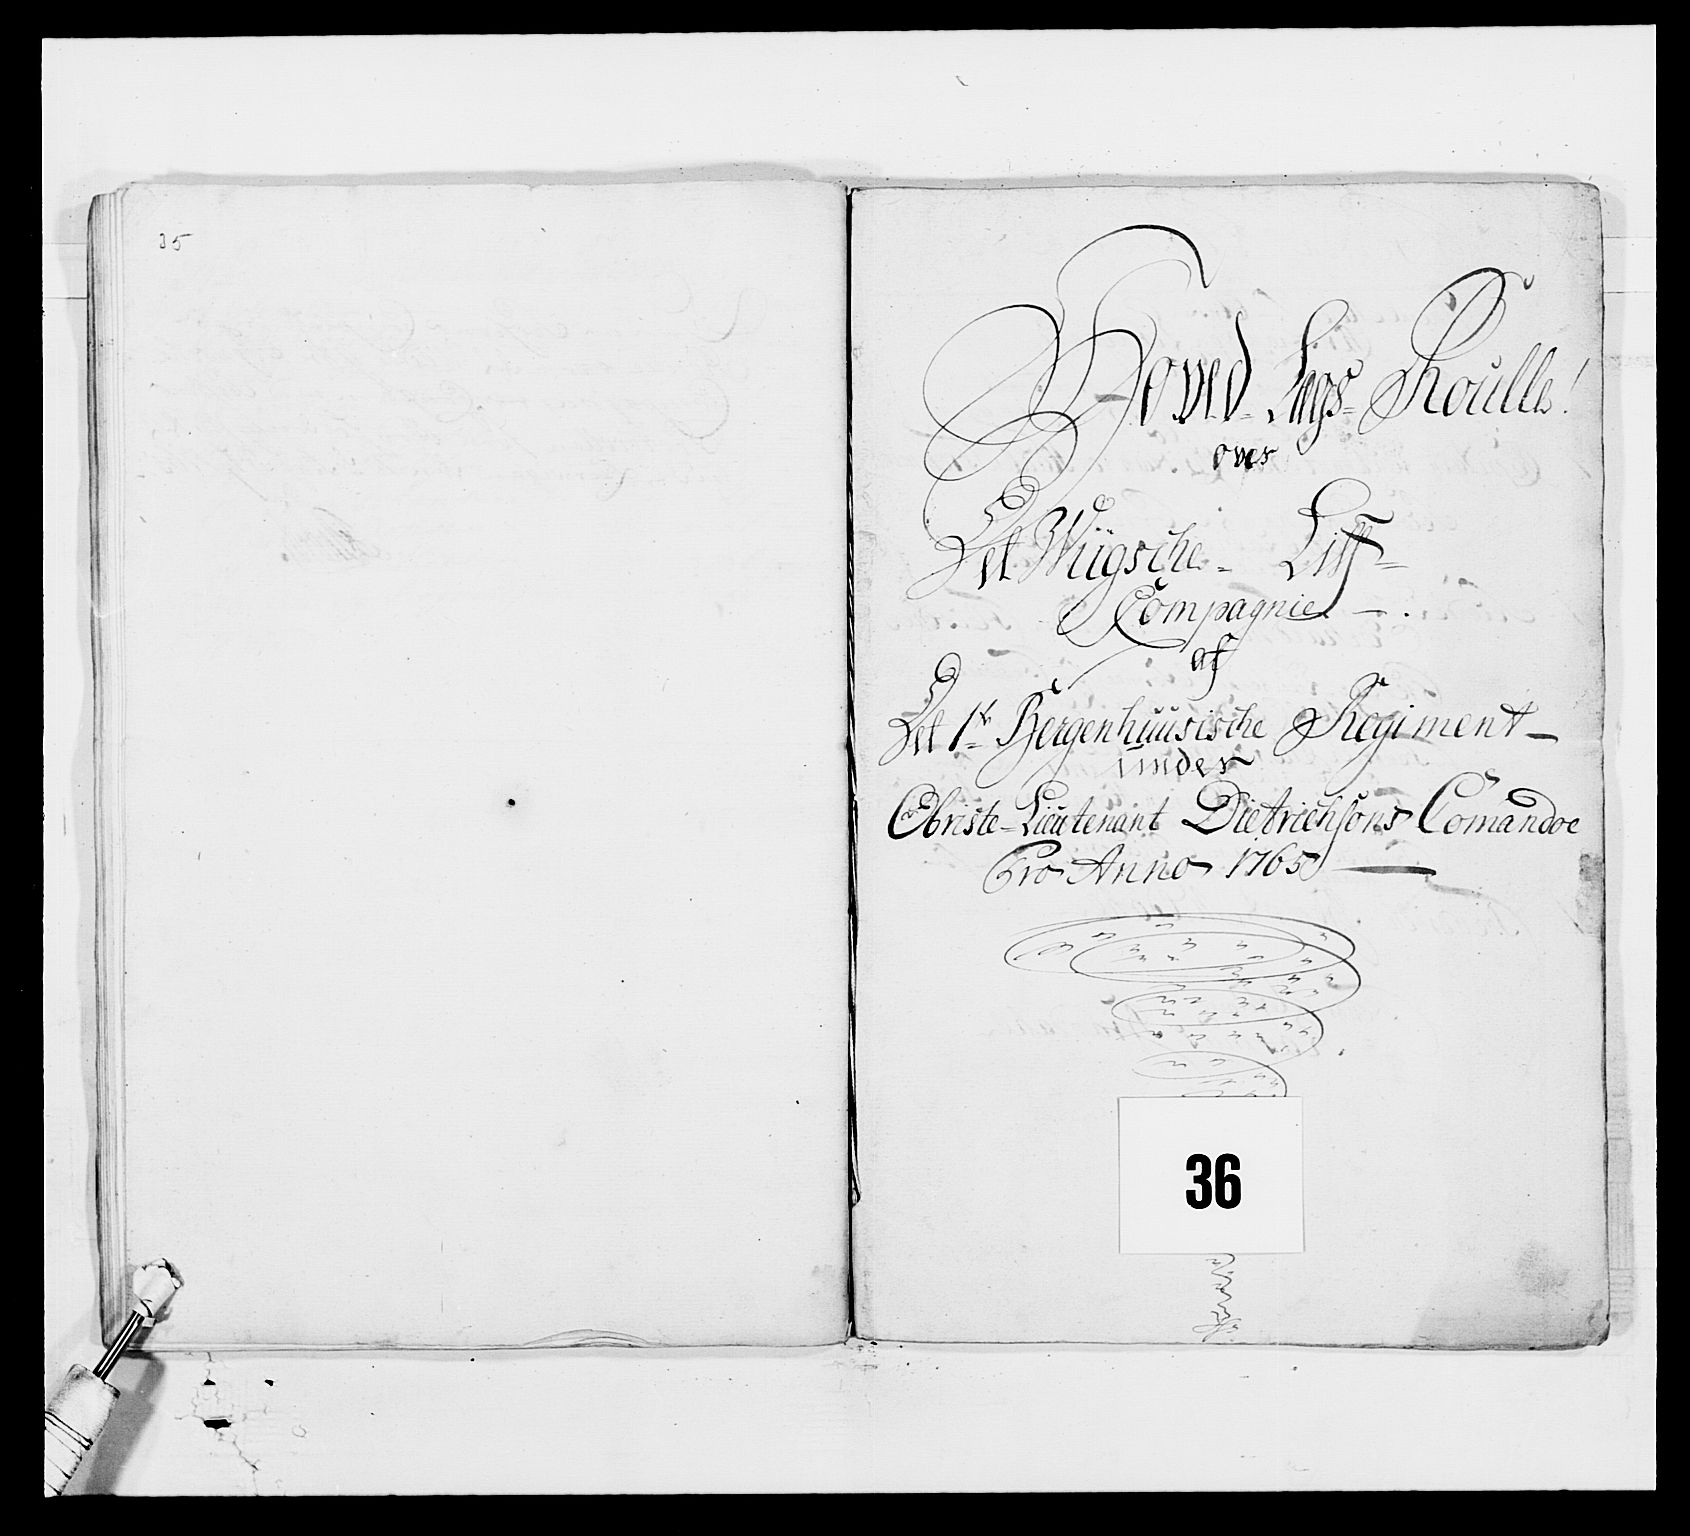 35
Hoved-Lægs-Roulle!
over
Det Wügsche- Liff=
Compagnie -.
af
Det 1te Bergenhuusische Regiment-
under
Obriste-Lieutenant Dietrichsons Comandoe
Pro Anno 1765
36